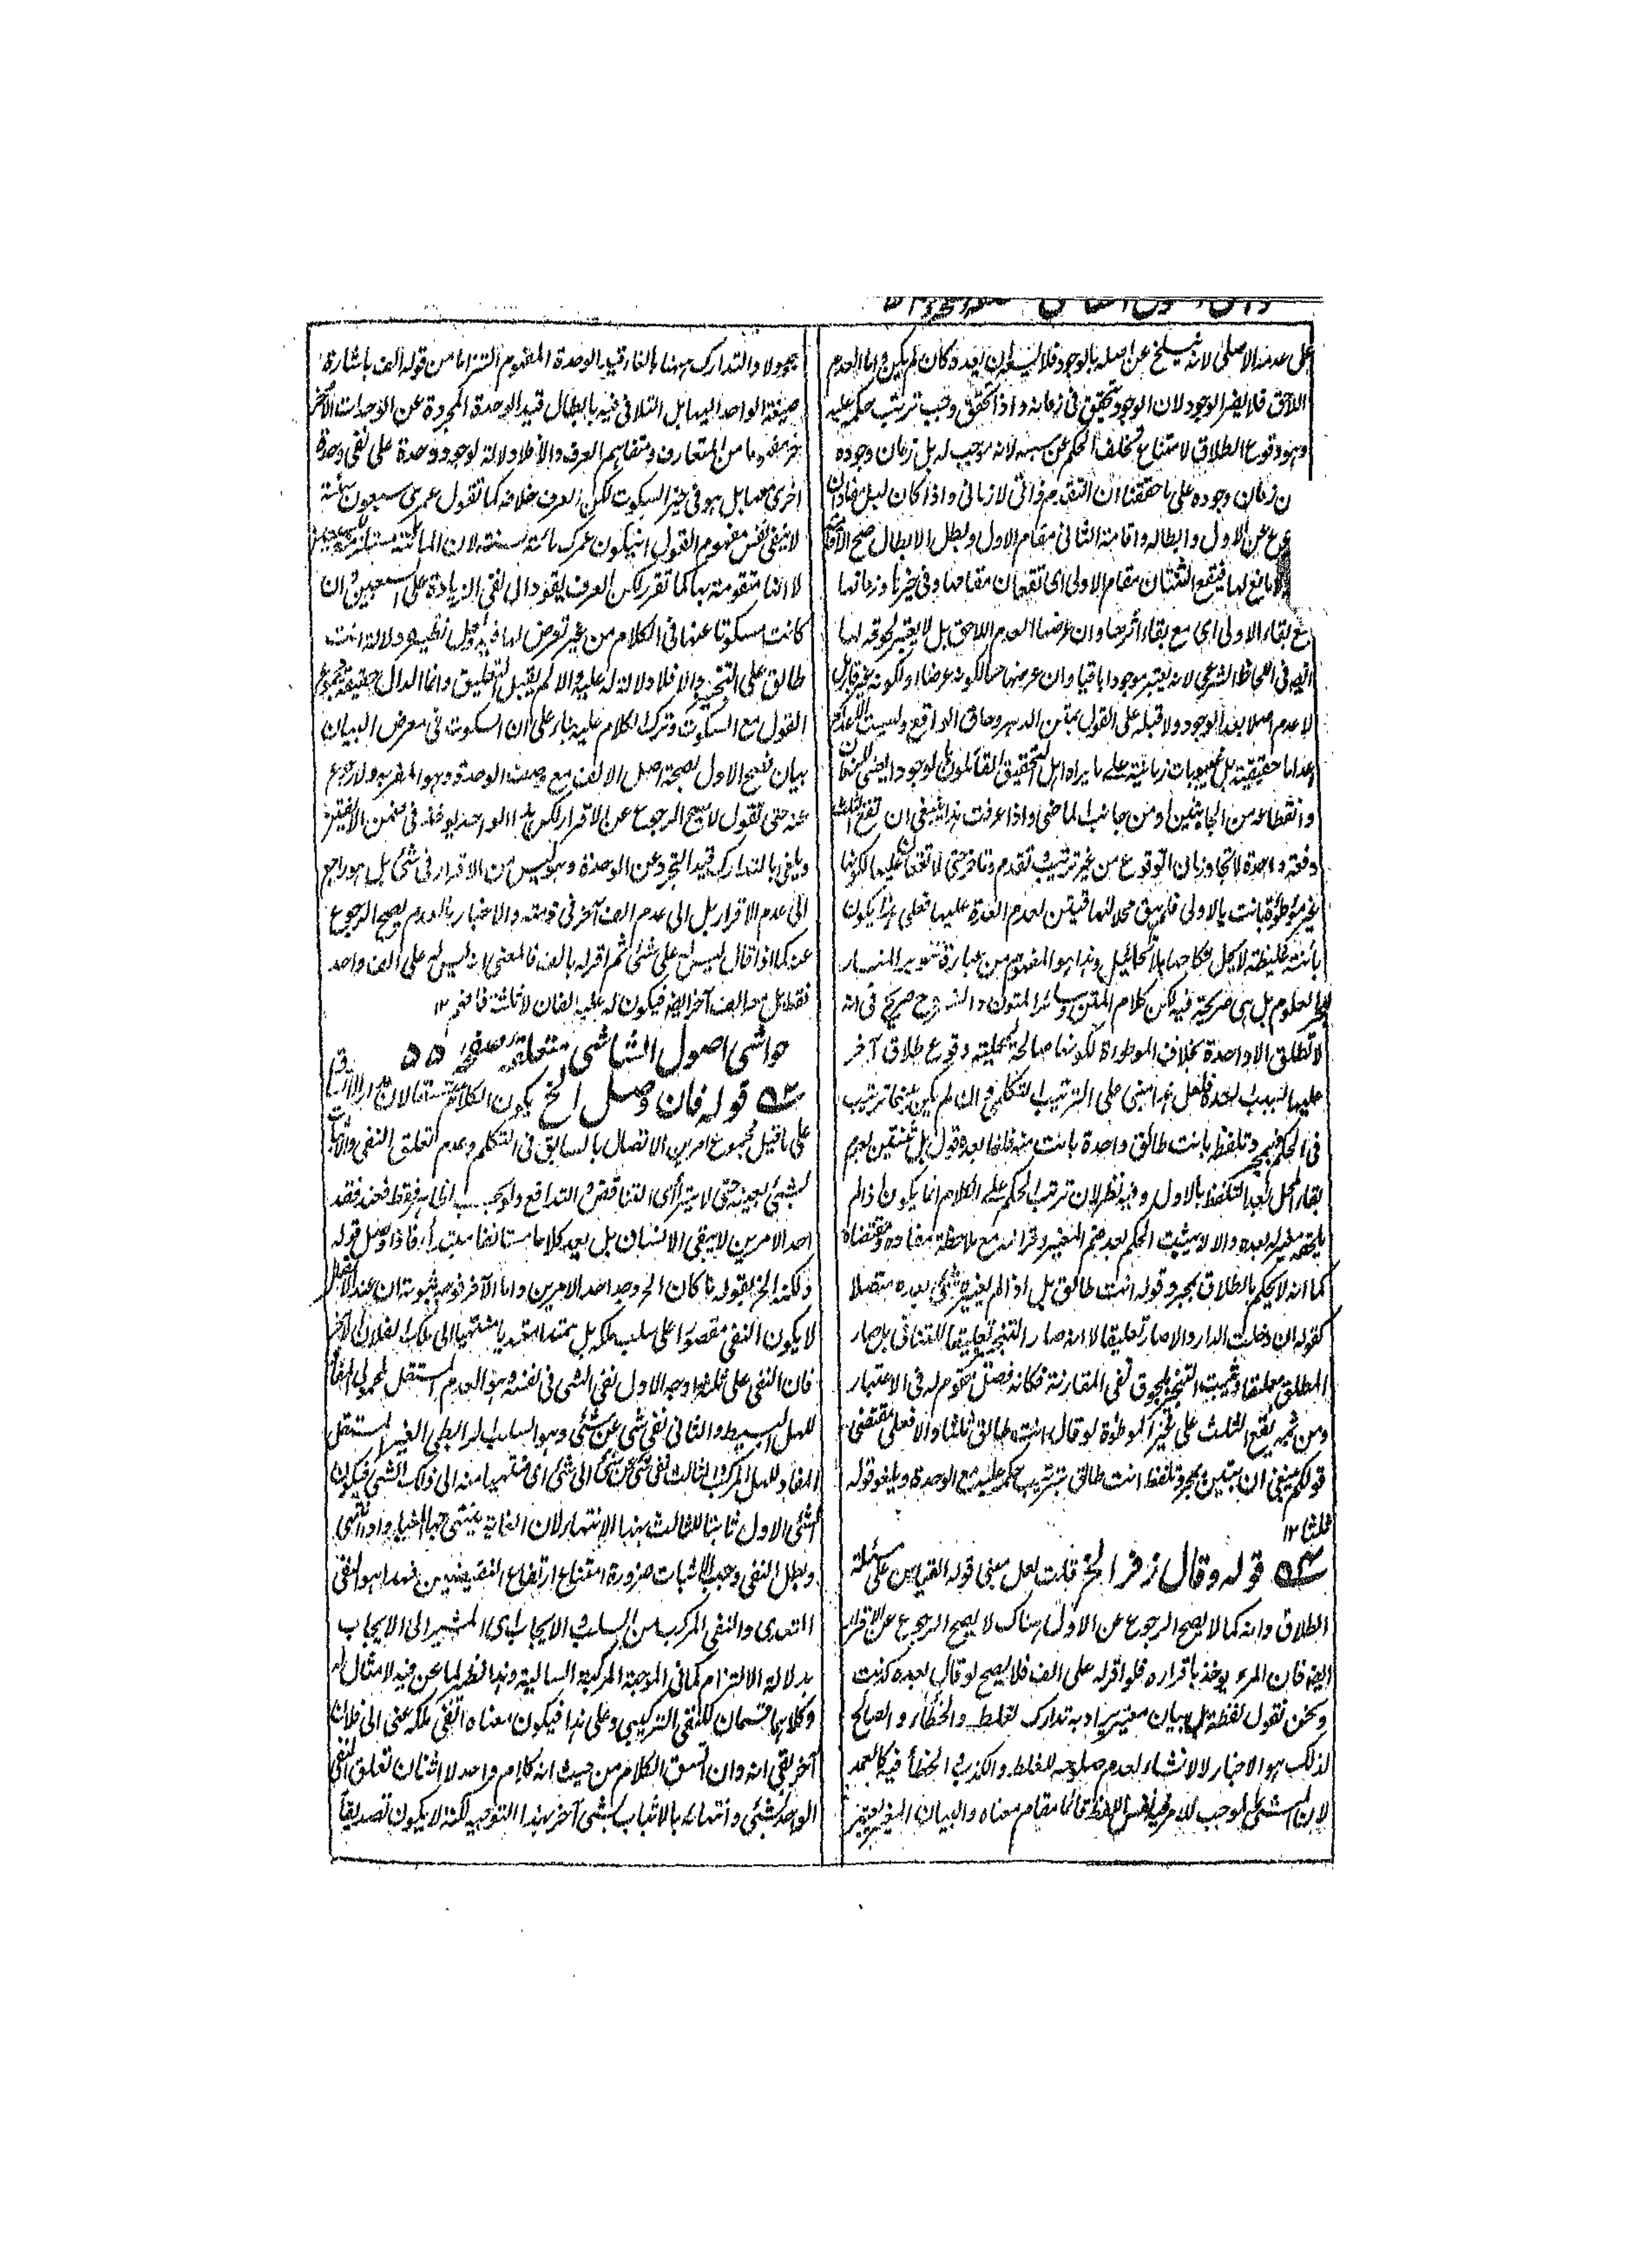 على عدمه الاصلى لانه ينسلخ عن اصله بالوجود فلا وكان لم يكن واما العدم
اللاحق فلا يضر الوجود لان الوجود تحقق فى زمانه واذا تحقق وجب ترتب حكمه عليه
وهو وقوع الطلاق لامتناع تخلف الحكم عن لانه موجب له بل زمان وجوده
زمان وجوده على ما حققنا ان التقدم ذاتى لا زمانى واذا كان لبل
عن الاول وابطاله واقامة الثانى مقام الاول وبطل الابطال صح
لا مانع لها فيقع الثنتان مقام الاولى اى تقعان مقامها وفى حيزها وزمانها
مع بقاء الاولى اى مع بقاء اثرها وان عرضها العدم اللاحق بل لا يعتبر لحوقه لها
فى اللحاظ الشرعى لانه يعتبر موجودا باقيا وان عرضها لكونه عرضا ولكونه غير قار بل
لا عدم اصلا بعد الوجود ولا قبله على القول بمتن الدهر وحاق الواقع وليست
اعداما حقيقية بل غيبوبات زمانية على ما يراه اهل التحقيق القائلون
وانقطاعه من الجانبين او من جانب الماضى واذا عرفت هذا ينبغى ان تقع الثلث
دفعة واحدة لا تجاوز زمان الوقوع من غير ترتيب تقدم وتأخر حتى لا تقعان عليها لكونها
غير موطؤة بانت بالاولى فلم يبق محلا لثنتين لعدم العدة عليها فعلى هذا يكون
بائنة غليظة لا يحل نكاحها بلا تحليل وهذا هو المفهوم من عبارة تنوير المنار
لبحر العلوم بل هى صريحة فيه لكن كلام المتن وسائر المتون والشروح صريح فى انه
لا تطلق الا واحدة بخلاف الموطؤة لكونها صالحة لمحلية وقوع طلاق آخر
عليها لسبب العدة فلعل هذا مبنى على الترتيب التكلمى وان لم يكن بينها ترتيب
فى الحكم فبمجرد تلفظ بانت طالق واحدة بانت منه فلغا بعده قول بل ثنتين لعدم
بقاء المحل بعد التلفظ بالاول وفيه نظر لان ترتب الحكم على الكلام انما يكون اذا لم
يلحقه مغير له بعده والا لا يثبت الحكم بعد ضم المغير وقرانه مع ملاحظة مفاده ومقتضاه
كما انه لا يحكم بالطلاق بمجرد قوله انت طالق بل اذا لم يغيره شئ بعده متصلا
كقوله ان دخلت الدار والا صار تعليقا لا انه صار التنجيز تعليقا للتنافى بل صار
المطلق معلقا وثمرته التنجيز بلحوق نفى المقارنة فكانه فصل مقوم له فى الاعتبار
ومن ثمه يقع الثلث على غير الموطؤة لو قال انت طالق ثلثا والا فعلى مقتضى
قولكم ينبغى ان تبين بمجرد تلفظ انت طالق بترتب حكمه عليه مع الوحدة ويلغو قوله
ثلثا ١٢
قوله وقال زفر الخ قلت لعل مبنى قوله القياس على مسئلة
الطلاق وانه كما لا يصح الرجوع عن الاول هناك لا يصح الرجوع عن الاقرار
ايضا فان المرء يؤخذ باقراره فلو اقر له على الف فلا يصح لو قال بعده كذبت
ونحن نقول لفظة بل بيان مغير يراد به تدارك الغلط والخطأ والصالح
لذلك هو الاخبار لا الانشاء لعدم صلوحه للغلط والكذب الخطأ فيه كالعمد
لان المنشئ الموجب للامر فيه نفس اللفظ قائما مقام معناه والبيان المغير يعتبر
والتدارك ههنا بالغاء قيد الوحدة المفهوم التزاما من قوله الف باشارة
صيغة الواحد اليها بل التلافى فيه بابطال قيد الوحدة المجردة عن الوحدات الاخر
من المتعارف ومتفاهم العرف والا فلا دلالة لوجود وحدة على نفى وحدة
اخرى معها بل هو فى حيز السكوت لكن العرف خلافه كما تقول عمرى سبعون سنة
لا ينفى نفس مفهوم القول ان يكون عمرك مائة سنة لان المائة مستلزمة
لا انها متقومة بها كما تقرر لكن العرف يقود الى نفى الزيادة على السبعين وان
كانت مسكوتا عنها فى الكلام من غير تعرض لها فيه ولعل نظيره دلالة انت
طالق على التنجيز والا فلا دلالة له عليه والا لم يقبل التعليق وانما الدال حقيقة مجموع
القول مع السكوت وترك الكلام عليه بناء على ان السكوت فى معرض البيان
بيان فصح الاول لصحة اصل الالف مع وصف الوحدة وهو المقر به ولا رجوع
عنه حتى تقول لا يصح الرجوع عن الاقرار لكن هذا الواحد يؤخذ فى ضمن الاخير
ويلغى بالتدارك قيد التجرد عن الوحدة وهو ليس من الاقرار فى شئ بل هو راجع
الى عدم الاقرار بل الى عدم الف آخر فى ذمته والاخبار بالعدم يصح الرجوع
عنه كما اذا قال ليس له على شئ ثم اقر له بالف فالمعنى انه ليس له على الف واحد
فقط بل مع الف آخر ايضا فيكون له عليه الفان لا ثلثة فافهم ١٢
حواشى اصول الشاشى متعلقه صفحه ٥٥
قوله فان وصل الخ يكون الكلام
على ما قيل بمجموع امرين الاتصال بالسابق فى التكلم وعدم تعلق النفى والاثبات
بشئ بعينه حتى لا يترأى التناقض والتدافع ولو بحسب الظاهر فقط فعند فقد
احد الامرين لا يبقى الاتساق بل يعد كلاما مستانفا مبتدأ فاذا وصل قوله
ولكنه الخ بقوله ما كان الخ وجد احد الامرين واما الآخر فوجه ثبوته ان عند
لا يكون النفى مقصورا على سلب ملكه بل ممتدا متعديا منتهيا الى ملك الفلان الآخر
فان النفى على ثلثة اوجه الاول نفى الشئ فى نفسه وهو العدم المستقل
للهل البسيط والثانى نفى شئ عن شئ وهو السلب الرابطى الغير المستقل
المفاد للهل المركب والثالث نفى شئ عن شئ الى شئ اى منتهيا منه الى ذلك الشئ فيكون
الشئ الاول ثابتا للثالث بهذا الانتهاء لان الغاية ينتهى بها المغيا واذا انتهى
وبطل النفى وجب الاثبات ضرورة امتناع ارتفاع النقيضين فهذا هو النفى
المتعدى والنفى المركب من السلب الايجاب اى المشير الى الايجاب
بدلالة الالتزام كما فى الموجبة المركبة السالبة وهذا نظير لما نحن فيه لا مثال له
وكلاهما قسمان للنفى التركيبى وعلى هذا فيكون معناه انتفى ملكه عنى الى فلان
آخر بقى انه وان اتسق الكلام من حيث انه كلام واحد لا اثنان تعلق النفى
الواحد بشئ وانتهائه بالاثبات بشئ آخر بهذا التوجيه لكنه لا يكون تصديقا